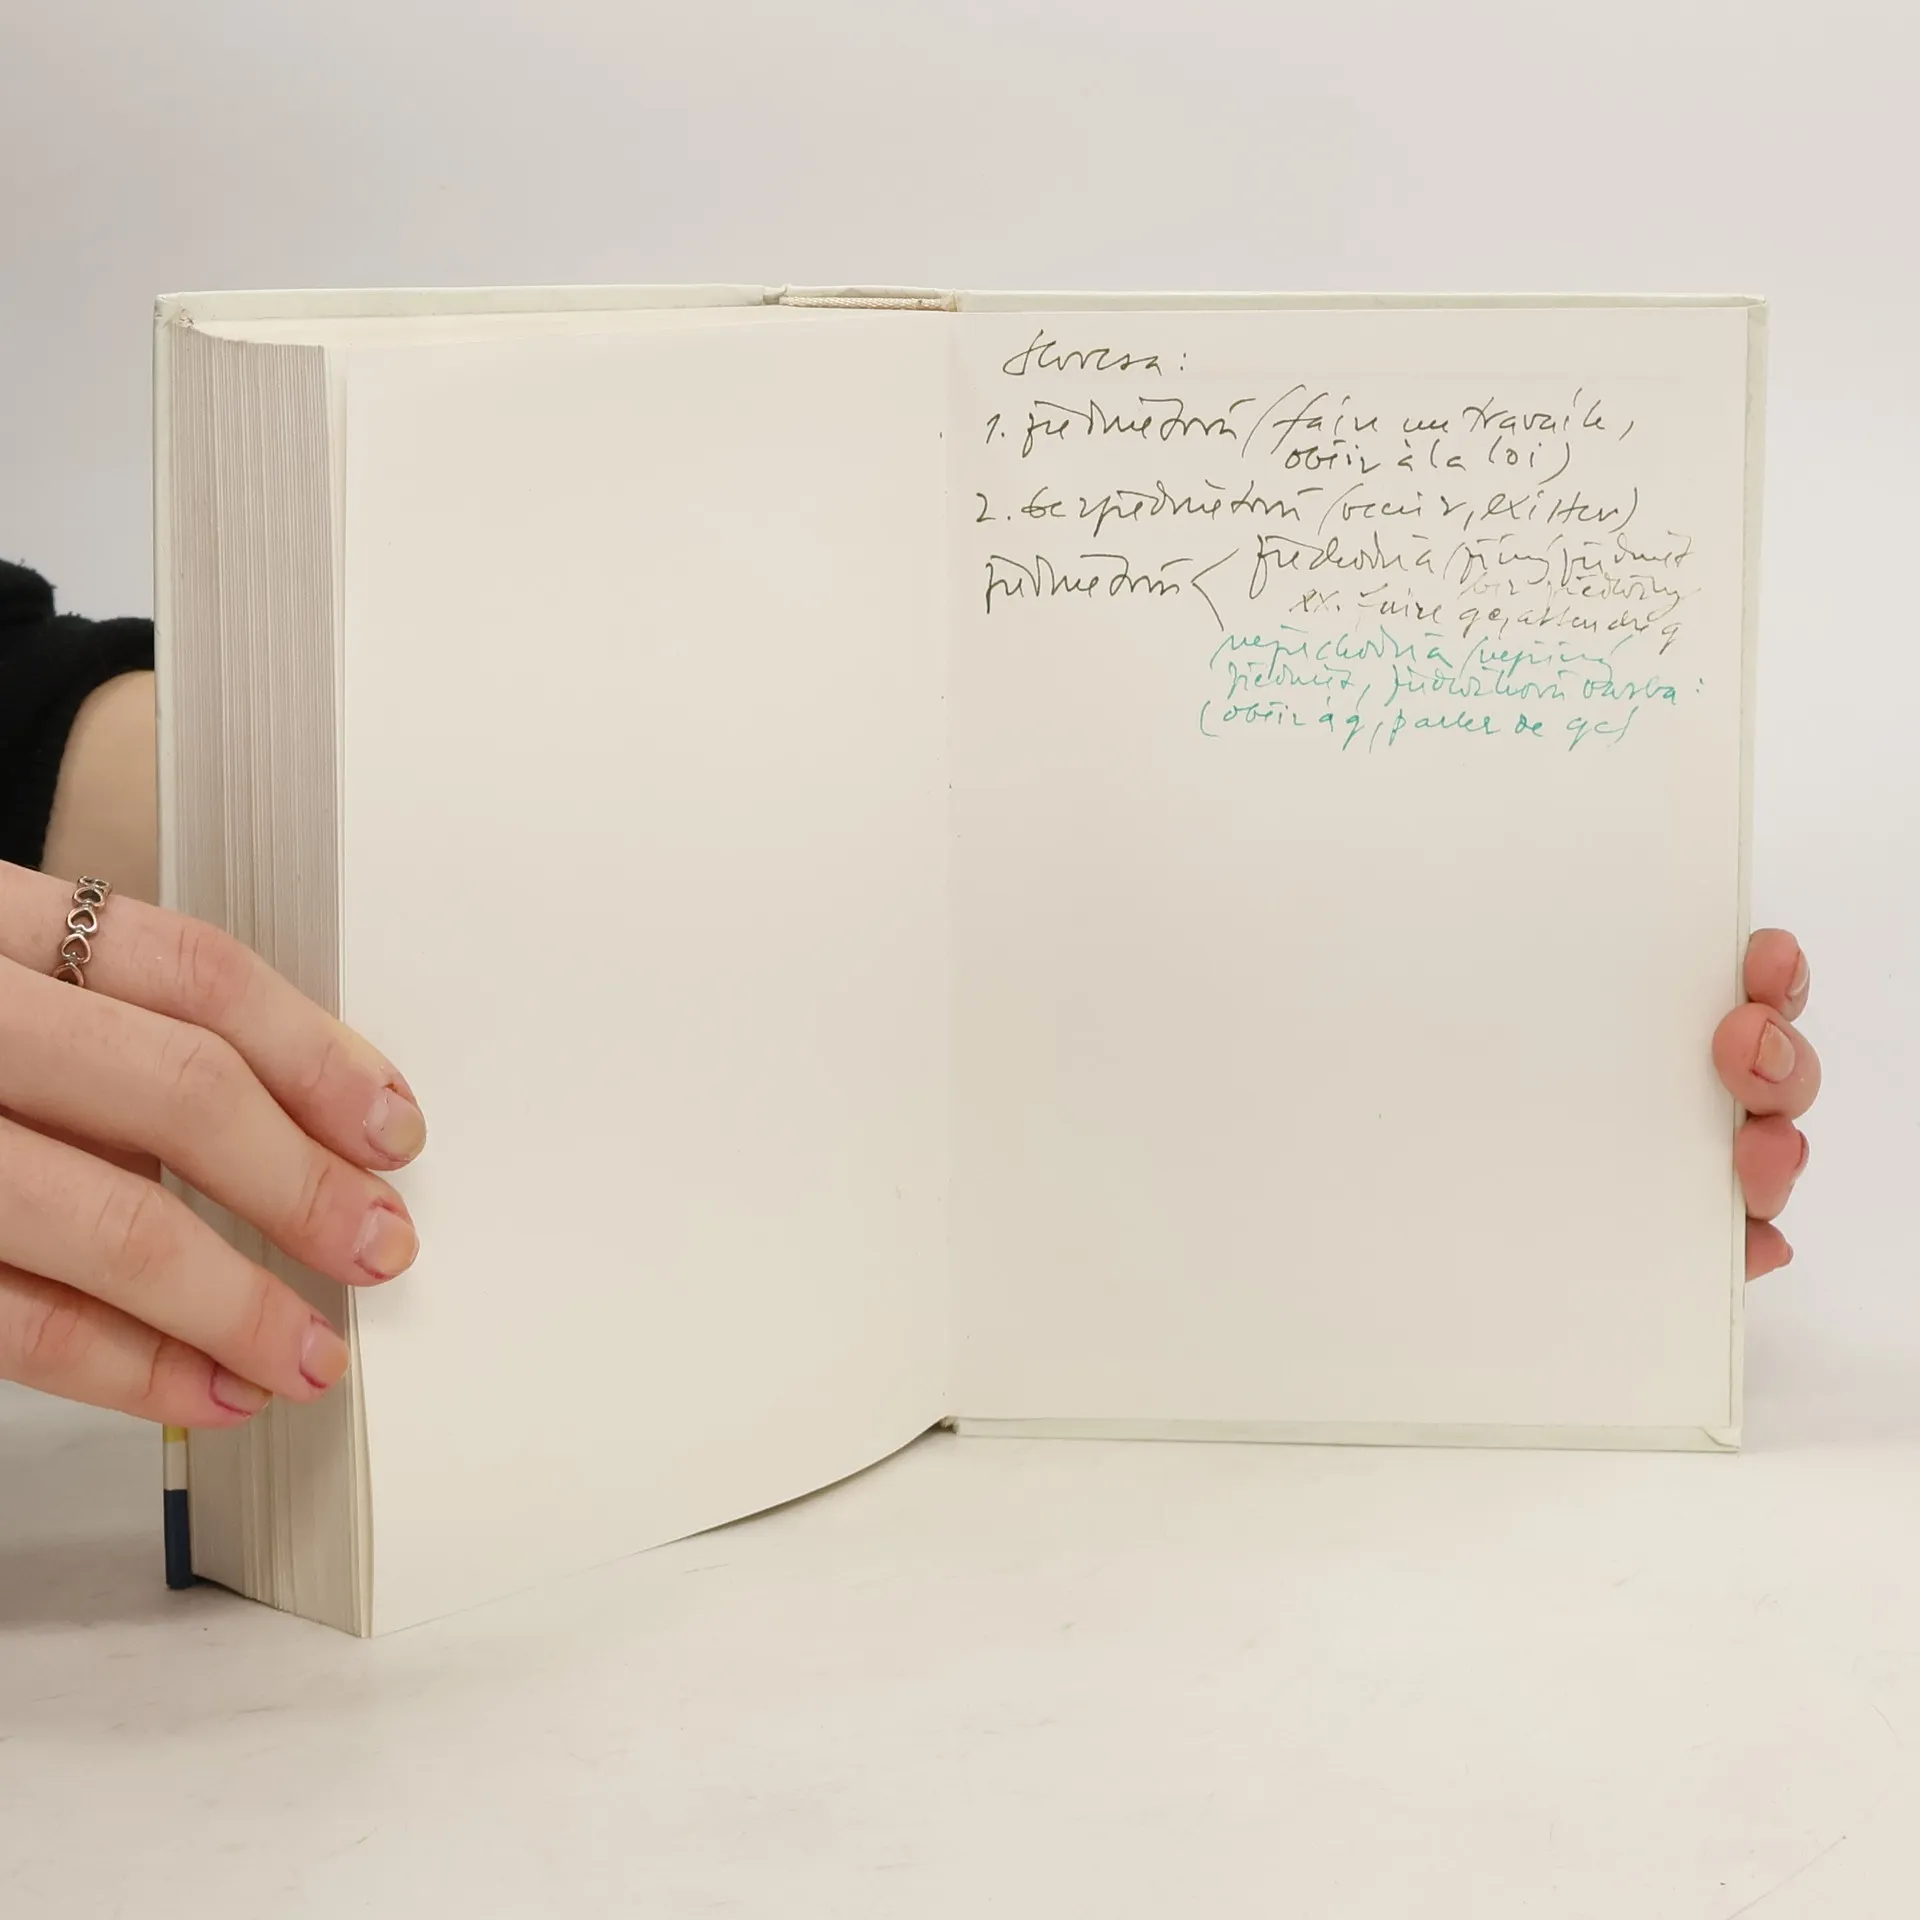 slovesa:
1. předmětová (faire un travail,
obéir à la loi)
2. bezpředmětová (venir, exister)
předmětová < přechodná (přímý předmět
bez předložky
ex. faire qc, attendre q
nepřechodná (nepřímý
předmět, předložková vazba:
(obéir à q, parler de qc)